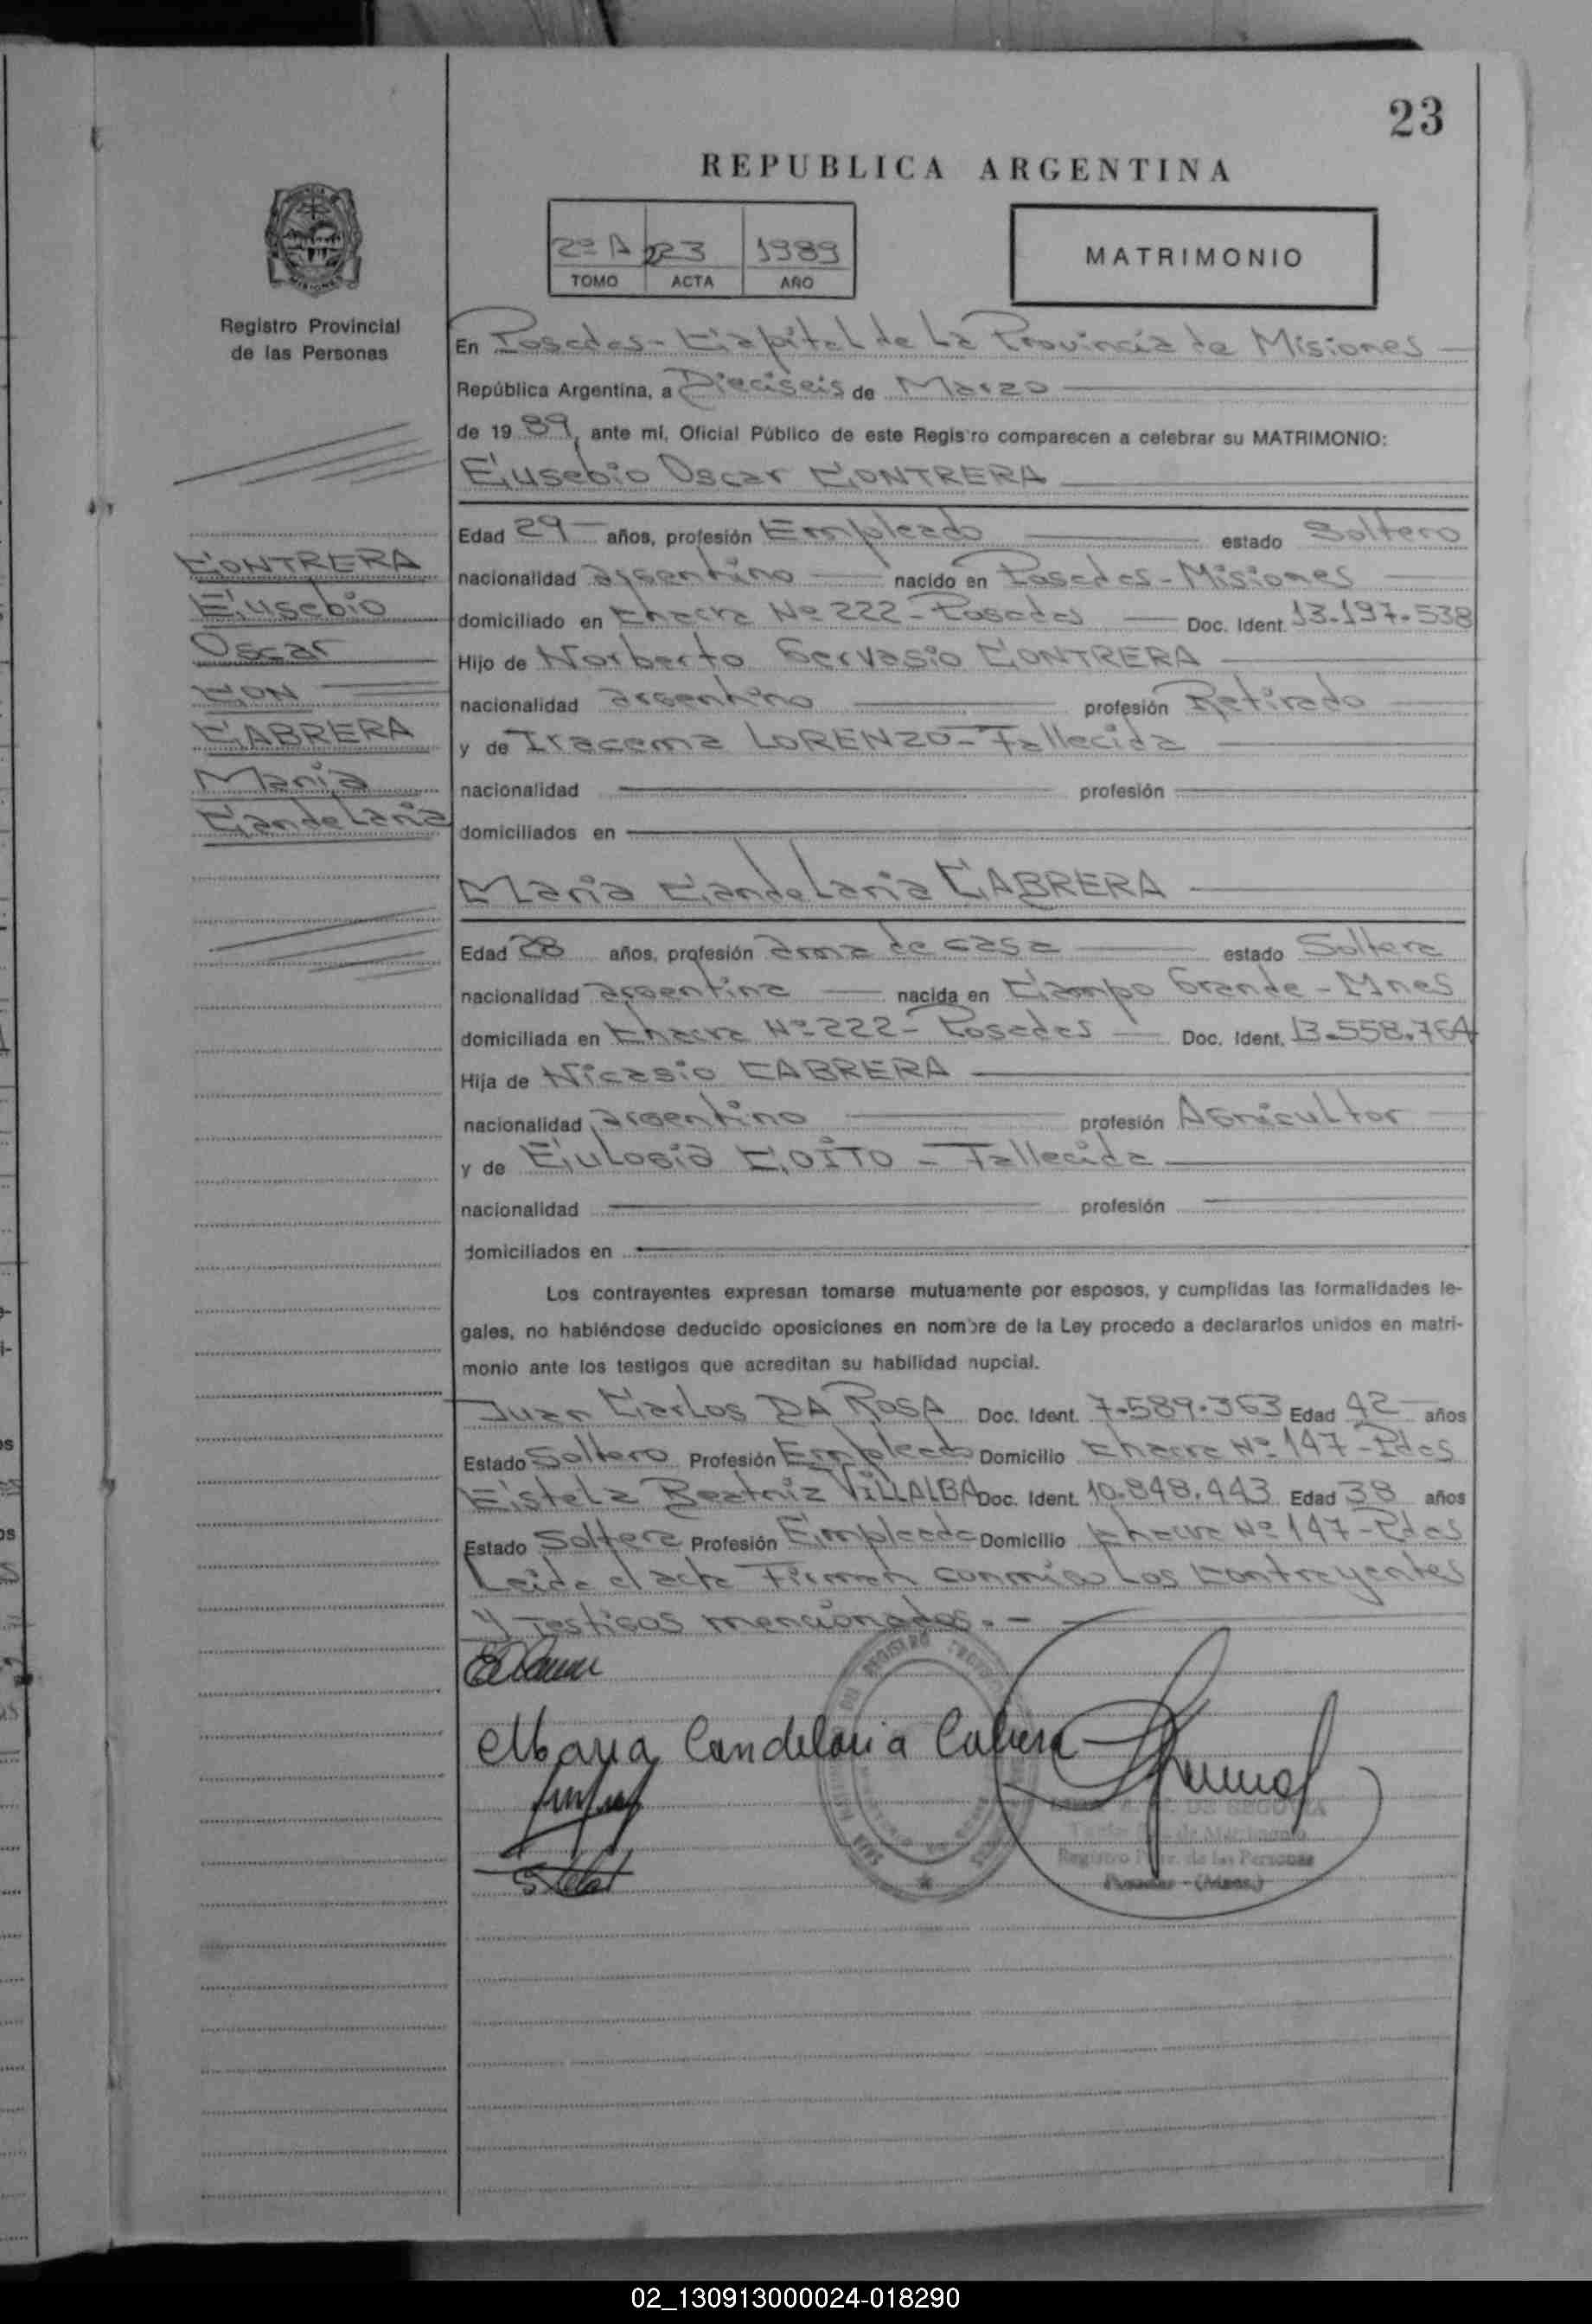 23
REPUBLICA ARGENTINA
2º A 23 1989
TOMO ACTA AÑO
MATRIMONIO
Registro Provincial
de las Personas
En Posadas - Capital de La Provincia de Misiones
República Argentina, a Dieciseis de Marzo
de 19 89, ante mí, Oficial Público de este Registro comparecen a celebrar su MATRIMONIO:
Eusebio Oscar CONTRERA
CONTRERA
Eusebio
Oscar
CON
CABRERA
Maria
Candelaria
Edad 29 años, profesión Empleado estado Soltero
nacionalidad argentino nacido en Posadas - Misiones
domiciliado en Chacra Nº 222 - Posadas Doc. Ident. 13.197.538
Hijo de Norberto Gervasio CONTRERA
nacionalidad argentino profesión Retirado
y de Iracema LORENZO - Fallecida
nacionalidad profesión
domiciliados en
Maria Candelaria CABRERA
Edad 28 años, profesión ama de casa estado Soltera
nacionalidad argentina nacida en Campo Grande - Mnes
domiciliada en Chacra Nº 222 - Posadas Doc. Ident. 13.558.764
Hija de Nicasio CABRERA
nacionalidad argentino profesión Agricultor
y de Eulogia COITO - Fallecida
nacionalidad profesión
domiciliados en
Los contrayentes expresan tomarse mutuamente por esposos, y cumplidas las formalidades le-
gales, no habiéndose deducido oposiciones en nombre de la Ley procedo a declararlos unidos en matri-
monio ante los testigos que acreditan su habilidad nupcial.
Juan Carlos DA ROSA Doc. Ident. 7.589.363 Edad 42 años
Estado Soltero Profesión Empleado Domicilio Chacra Nº 147 - Pdas
Estela Beatriz VILLALBA Doc. Ident. 10.848.443 Edad 38 años
Estado Soltera Profesión Empleada Domicilio Chacra Nº 147 - Pdas
Leida el acta Firman conmigo Los contrayentes
y testigos mencionados. -
Maria Candelaria Cabrera
DE SEGOVIA
Registro Prov. de las Personas
Posadas - (Mnes.)
02_130913000024-018290